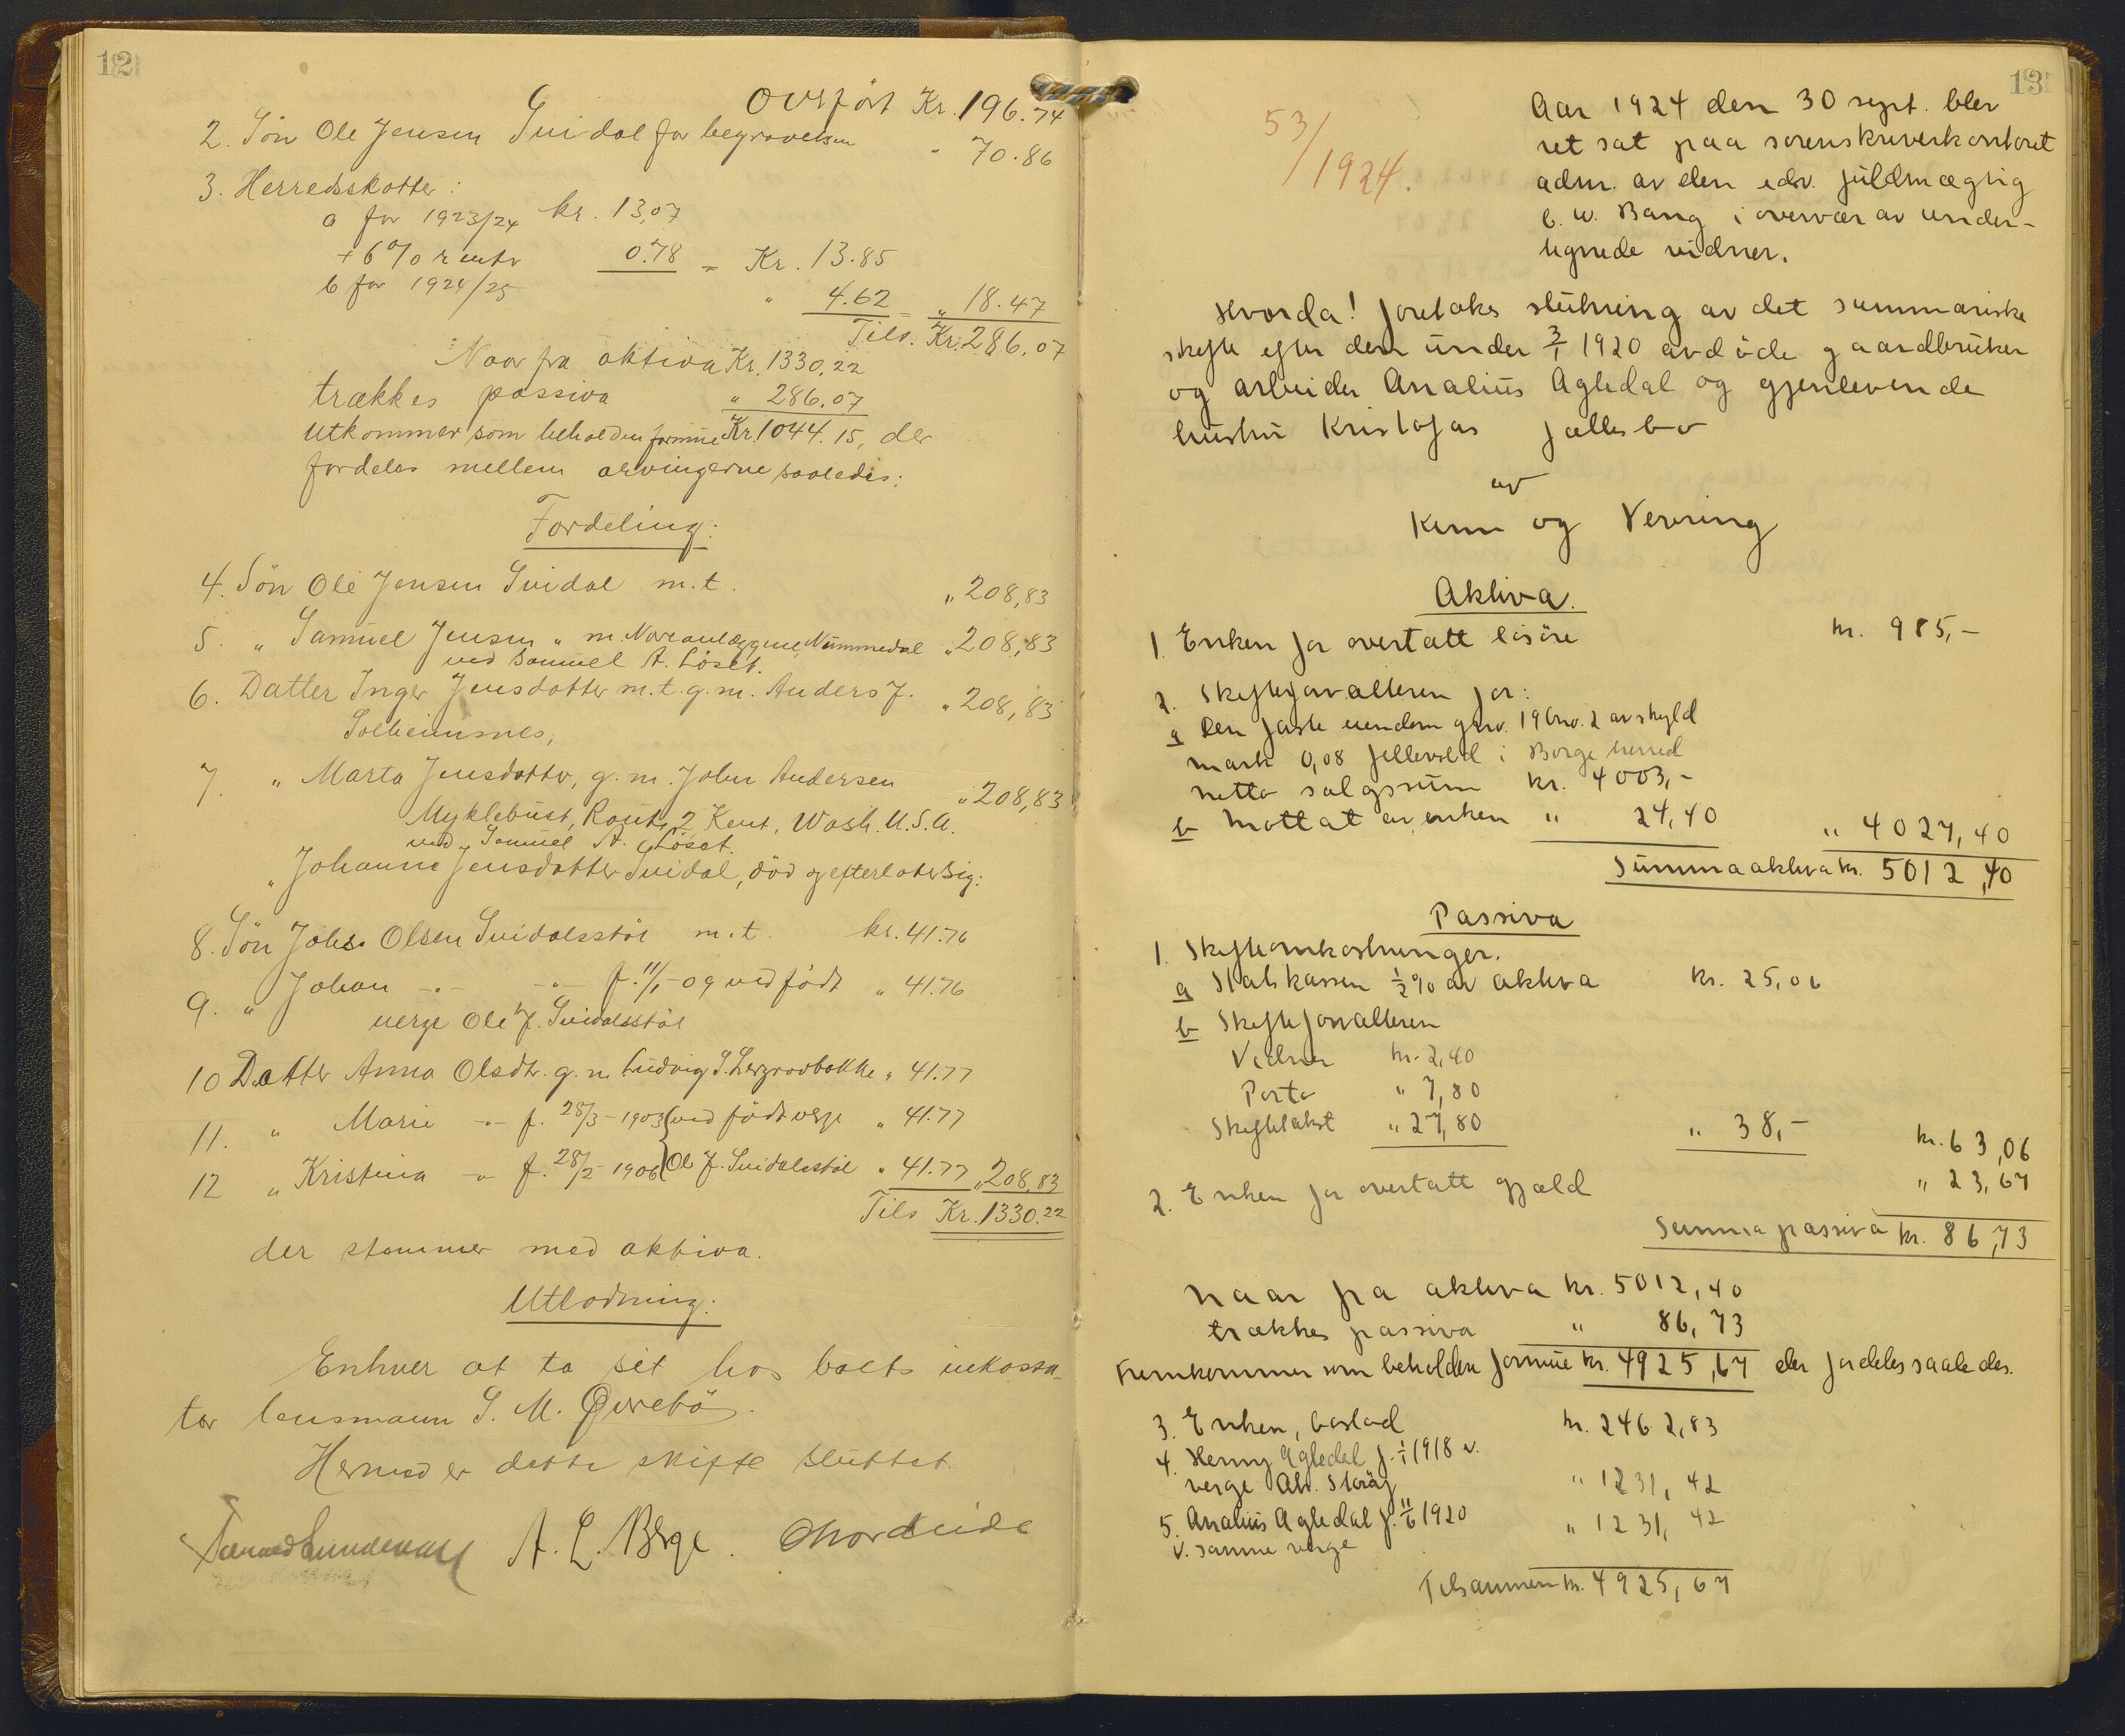 12
Overført Kr. 196.74
2. Søn Ole Jensen Svidal for begravelsen " 70.86
3. Herredsskatter:
a for 1923/24 kr. 13,07
+ 6% rente 0.78 = Kr. 13.85
b for 1924/25 " 4.62 = " 18.47
Tils. Kr. 286.07
Naar fra aktiva Kr. 1330,22
trækkes passiva " 286.07
Utkommer som beholden formue Kr. 1044.15, der
fordeles mellem arvingerne saaledes:
Fordeling:
4. Søn Ole Jensen Svidal m.t. " 208,83
5. " Samuel Jensen " m. Nummedal " 208,83
ved Samuel A. Löset.
6. Datter Inger Jensdatter m.t. g.m. Anders J. " 208,83
Solheimsnes,
7. " Marta Jensdatter, g.m. John Andersen " 208,83
Myklebust, Route 2 Kent, Wash. U.S.A.
ved Samuel A. Löset.
" Johanne Jensdatter Svidal, död og efterlater sig:
8. Søn Johs. Olsen Svidalsstöl m.t. kr. 41.76
9. " Johan -"- -"- f. 11/1-09 ved födt " 41.76
verge Ole J. Svidalsstöl
10 Datter Anna Olsdtr. g.m. Ludvig S. Lergrovbakke " 41.77
11. " Marie -"- f. 28/3-1903 (ved födt verge " 41.77
12 " Kristina -"- f. 28/2-1906 (Ole J. Svidalsstöl " 41.77 " 208,83
Tils Kr. 1330.22
der stemmer med aktiva.
Utlodning:
Enhver at ta sit hos boets inkassa-
tor lensmann S. M. Øvrebö.
Hermed er dette skifte sluttet.
A. L. Berge. O Nordeide
13
53/1924.
Aar 1924 den 30 sept. blev
ret sat paa sorenskriverkontoret
adm. av den edsv. fuldmægtig
C. W. Bang i overvær av under-
tegnede vidner.
Hvorda! foretakes slutning av det summariske
skifte efter den under 3/1 1920 avdöde gaardbruker
og arbeider Analius Agledal og gjenlevende
hustru Kristofas fællesbo
av
Kinn og Vevring
Aktiva.
1. Enken for overtatt lösöre kr. 985,-
2. Skifteforvalteren for:
a Den faste eiendom gnr. 19 bnr. 2 av skyld
mark 0,08 Fjellevold i Borge herred
netto salgssum kr. 4003,-
b Mottat av enken " 24,40 " 4027,40
Summa aktiva kr. 5012,40
Passiva
1. Skifteomkostninger.
a Statskassen 1/2% av aktiva kr. 25,06
b Skifteforvalteren
Vidner kr. 2,40
Porto " 7,80
Skiftetakst " 27,80 " 38,- kr. 63,06
2. Enken for overtatt gjæld " 23,67
Summa passiva kr. 86,73
Naar fra aktiva kr. 5012,40
trækkes passiva " 86,73
Fremkommer som beholden formue kr. 4925,67 der fordeles saaledes.
3. Enken, boslod kr. 2462,83
4. Henny Agledal f. 1/1 1918 v.
verge " 1231,42
5. Analius Agledal f. 11/6 1920 " 1231,42
v. samme verge
Tilsammen kr. 4925,67